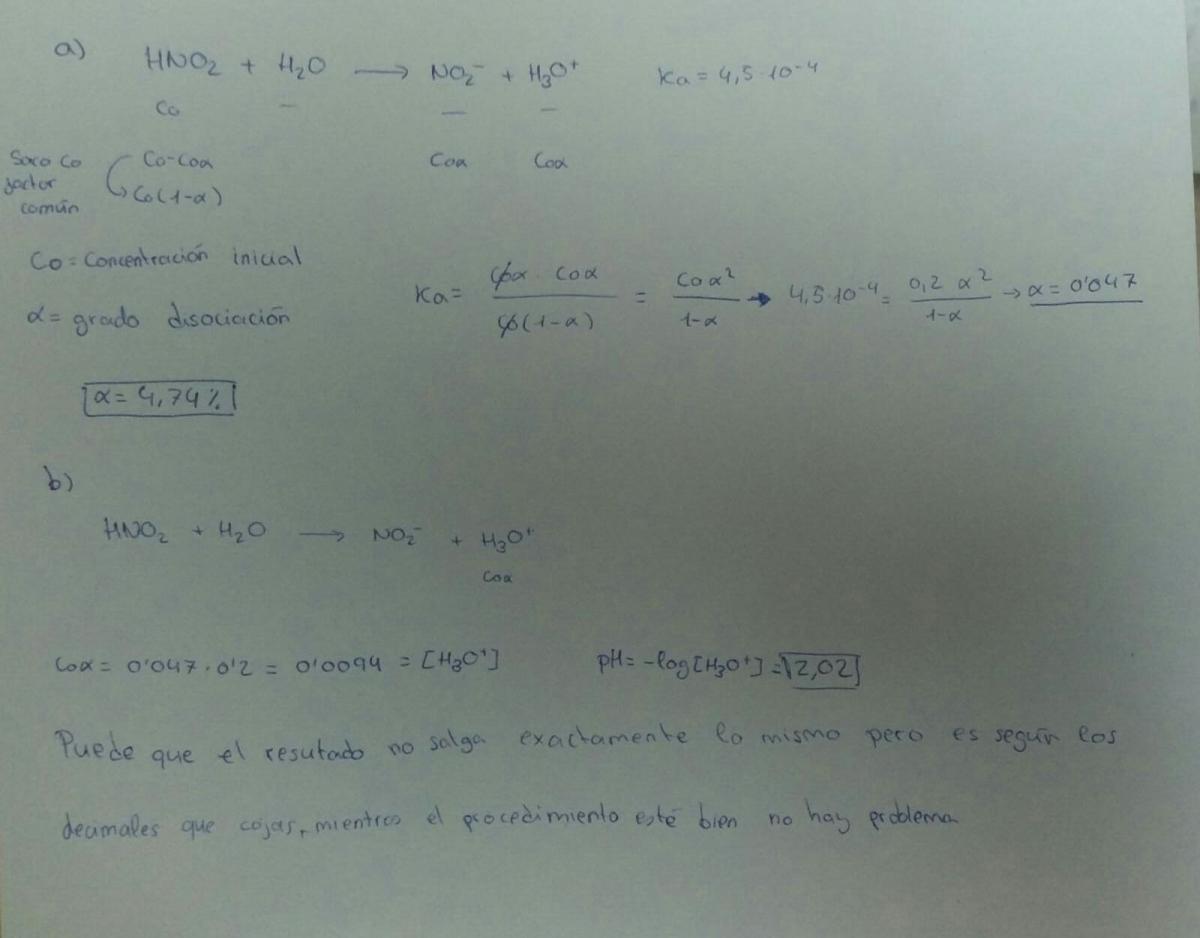 a) HNO₂ + H₂O → NO₂⁻ + H₃O⁺ Ka = 4,5·10⁻⁴
Co — — —
Saco Co factor común Co-Coα Coα Coα
Co(1-α)
Co = Concentración inicial
α = grado disociación
Ka = Coα · Coα / Co(1-α) = Coα² / 1-α → 4,5·10⁻⁴ = 0,2 α² / 1-α → α = 0'047
α = 4,74%
b)
HNO₂ + H₂O → NO₂⁻ + H₃O⁺
Coα
Coα = 0'047 · 0'2 = 0'0094 = [H₃O⁺] pH = -log[H₃O⁺] = 2,02
Puede que el resutado no salga exactamente lo mismo pero es según los
decimales que cojas, mientras el procedimiento esté bien no hay problema